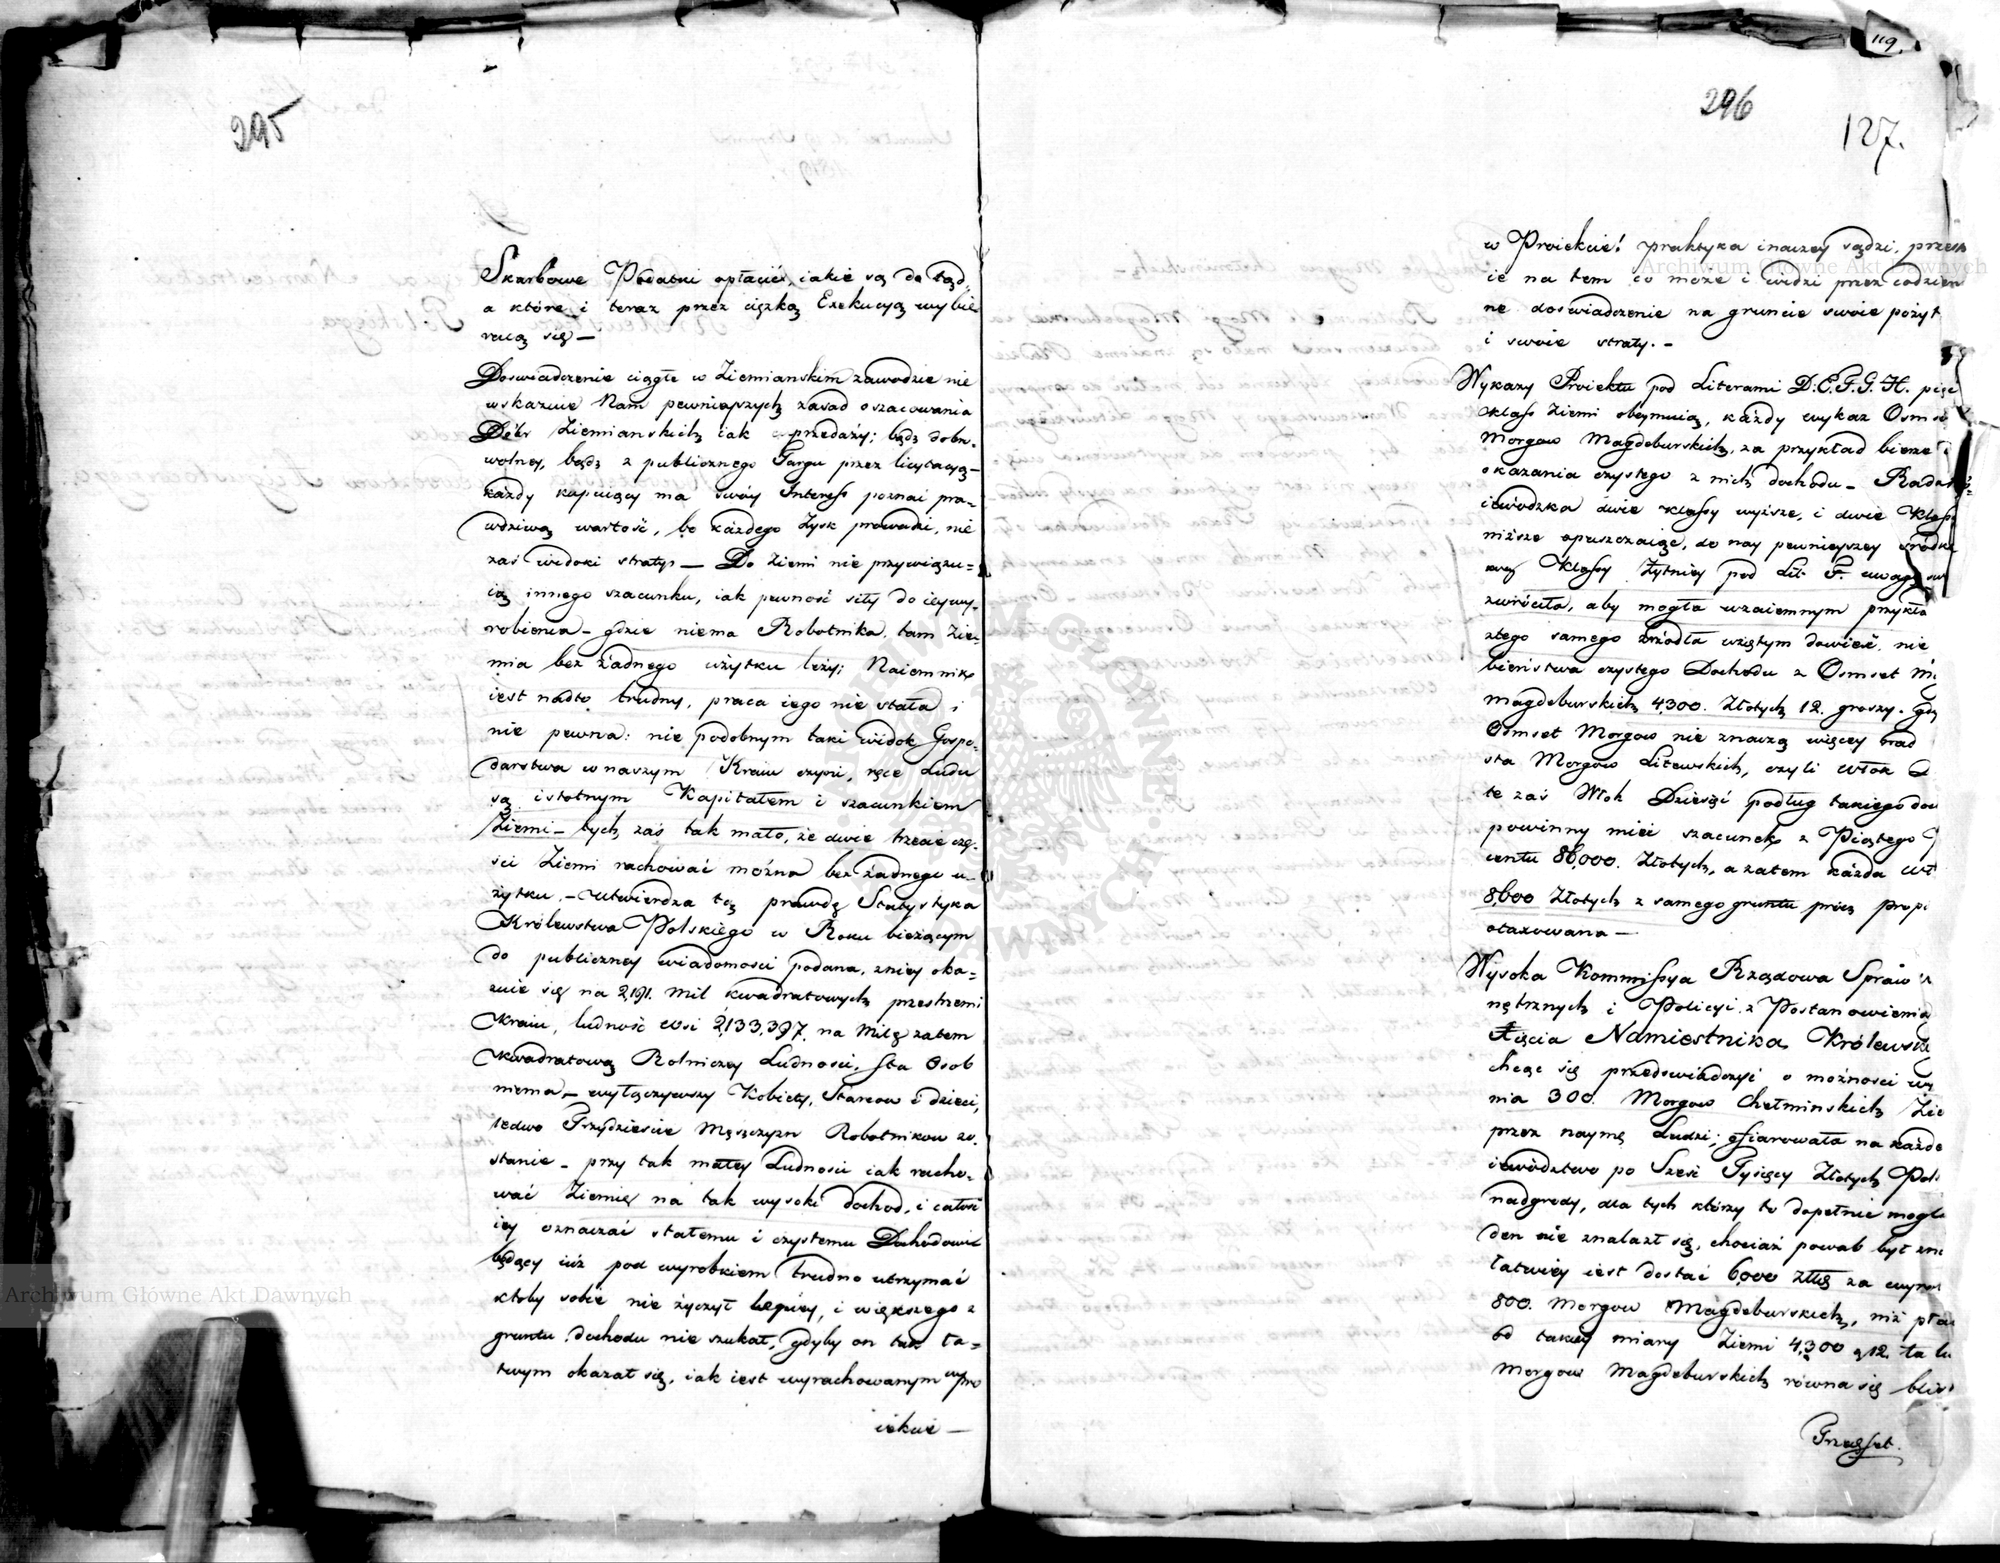 295
Skarbowe Podatki opłacić, iakie są do tąd,
a które i teraz przez ciężką Exekucyą wybie
raią się —
Doswiadczenie ciągłe w Ziemianskim zawodzie nie
wskazuie Nam pewnieyszych zasad oszacowania
Dóbr Ziemianskich iak sprzedaży; bądź dobro-
wolney, bądź z publicznego Targu przez licytacyą —
każdy kupuiący ma swóy Interess poznać pra-
wdziwą wartość, bo każdego Zysk prowadzi, nie
zaś widoki straty — Do Ziemi nie przywiązu=
ią innego szacunku, iak pewność siły do iey wy-
robienia — gdzie niema Robotnika, tam Zie-
mia bez żadnego użytku leży; Naiemnik
iest nadto trudny, praca iego nie stała i
nie pewna: nie podobnym taki widok Gospo-
darstwa w naszym Kraiu czyni, ręce Ludu
są istotnym Kapitałem i szacunkiem
Ziemi — tych zaś tak mało, że dwie trzecie czę-
ści Ziemi rachować można bez żadnego u-
żytku. — Utwierdza tę prawdę Statystyka
Królewstwa Polskiego w Roku bieżącym
do publiczney wiadomości podana, z niey oka=
zuie się na 2,191. Mil kwadratowych przestrzeni
Kraiu, ludność wsi 2,133,397. na Milę zatem
Kwadratową Rolniczey Ludności, sta Osob
niema — wyłączywszy Kobiety, Starcow i dzieci,
ledwo Trzydzieście Męszczyzn Robotnikow zo-
stanie — przy tak małey Ludności iak racho-
wać Ziemię na tak wysoki dochod, i całość
iey oznaczać stałemu i czystemu Dochodowi
będącey iuż pod wyrobkiem trudno utrzymać
ktoby sobie nie życzył lepiey, i większego z
gruntu dochodu nie szukał, gdyby on tak ła=
twym okazał się, iak iest wyrachowanym w Pro
iekcie —
119.
296
127.
w Proiekcie! praktyka inaczey sądzi, przesta
ie na tem co może i widzi przez codzien
ne doswiadczenie na gruncie swoie pożyt
i swoie straty. —
Wykazy Proiektu pod Literami D. E. F. G. H. pięć
Klass Ziemi obeymuią, każdy wykaz Osmset
Morgow Magdeburskich, za przykład bierze
okazania czystego z nich dochodu — Rada
iewódzka dwie klassy wyższe, i dwie Klassy
niższe opuszczaiąc, do nay pewnieyszey srodko
wey Klassy Żytniey pod Lit. F. uwagę
zwróciła, aby mogła wzaiemnym przykła
z tego samego źrzódła wziętym dowieść nie
bieństwa czystego Dochodu z Osmset M
magdeburskich 4,300. Złotych 12. groszy. gdy
Osmset Morgow nie znaczą więcey nad
sta Morgow Litewskich, czyli włok
te zaś Włok Dziesięć podług takiego do
powinny mieć szacunek z Piątego
centu 86,000. Złotych, a zatem każda wł
8600 Złotych z samego gruntu prócz prop
otaxowana —
Wysoka Kommissya Rządowa Spraw
nętrznych i Policyi, z Postanowienia
Xięcia Namiestnika Królewsk
chcąc się przedswiadczyć o możności wy
nia 300. Morgow Chełminskich Zie
przez naymę Ludzi; ofiarowała na każde
iewództwo po Sześć Tysięcy Złotych Pol
nadgrody, dla tych którzy to dopełnić mogli
den nie znalazł się, chociaż powab był zna
łatwiey iest dostać 6000 Złłę za wyro
800. Morgow Magdeburskich, niż pła
od takiey miary Ziemi 4,300 g 12. ta
Morgow Magdeburskich równa się blisk
Trzechset.
Archiwum Główne Akt Dawnych
Archiwum Główne Akt Dawnych